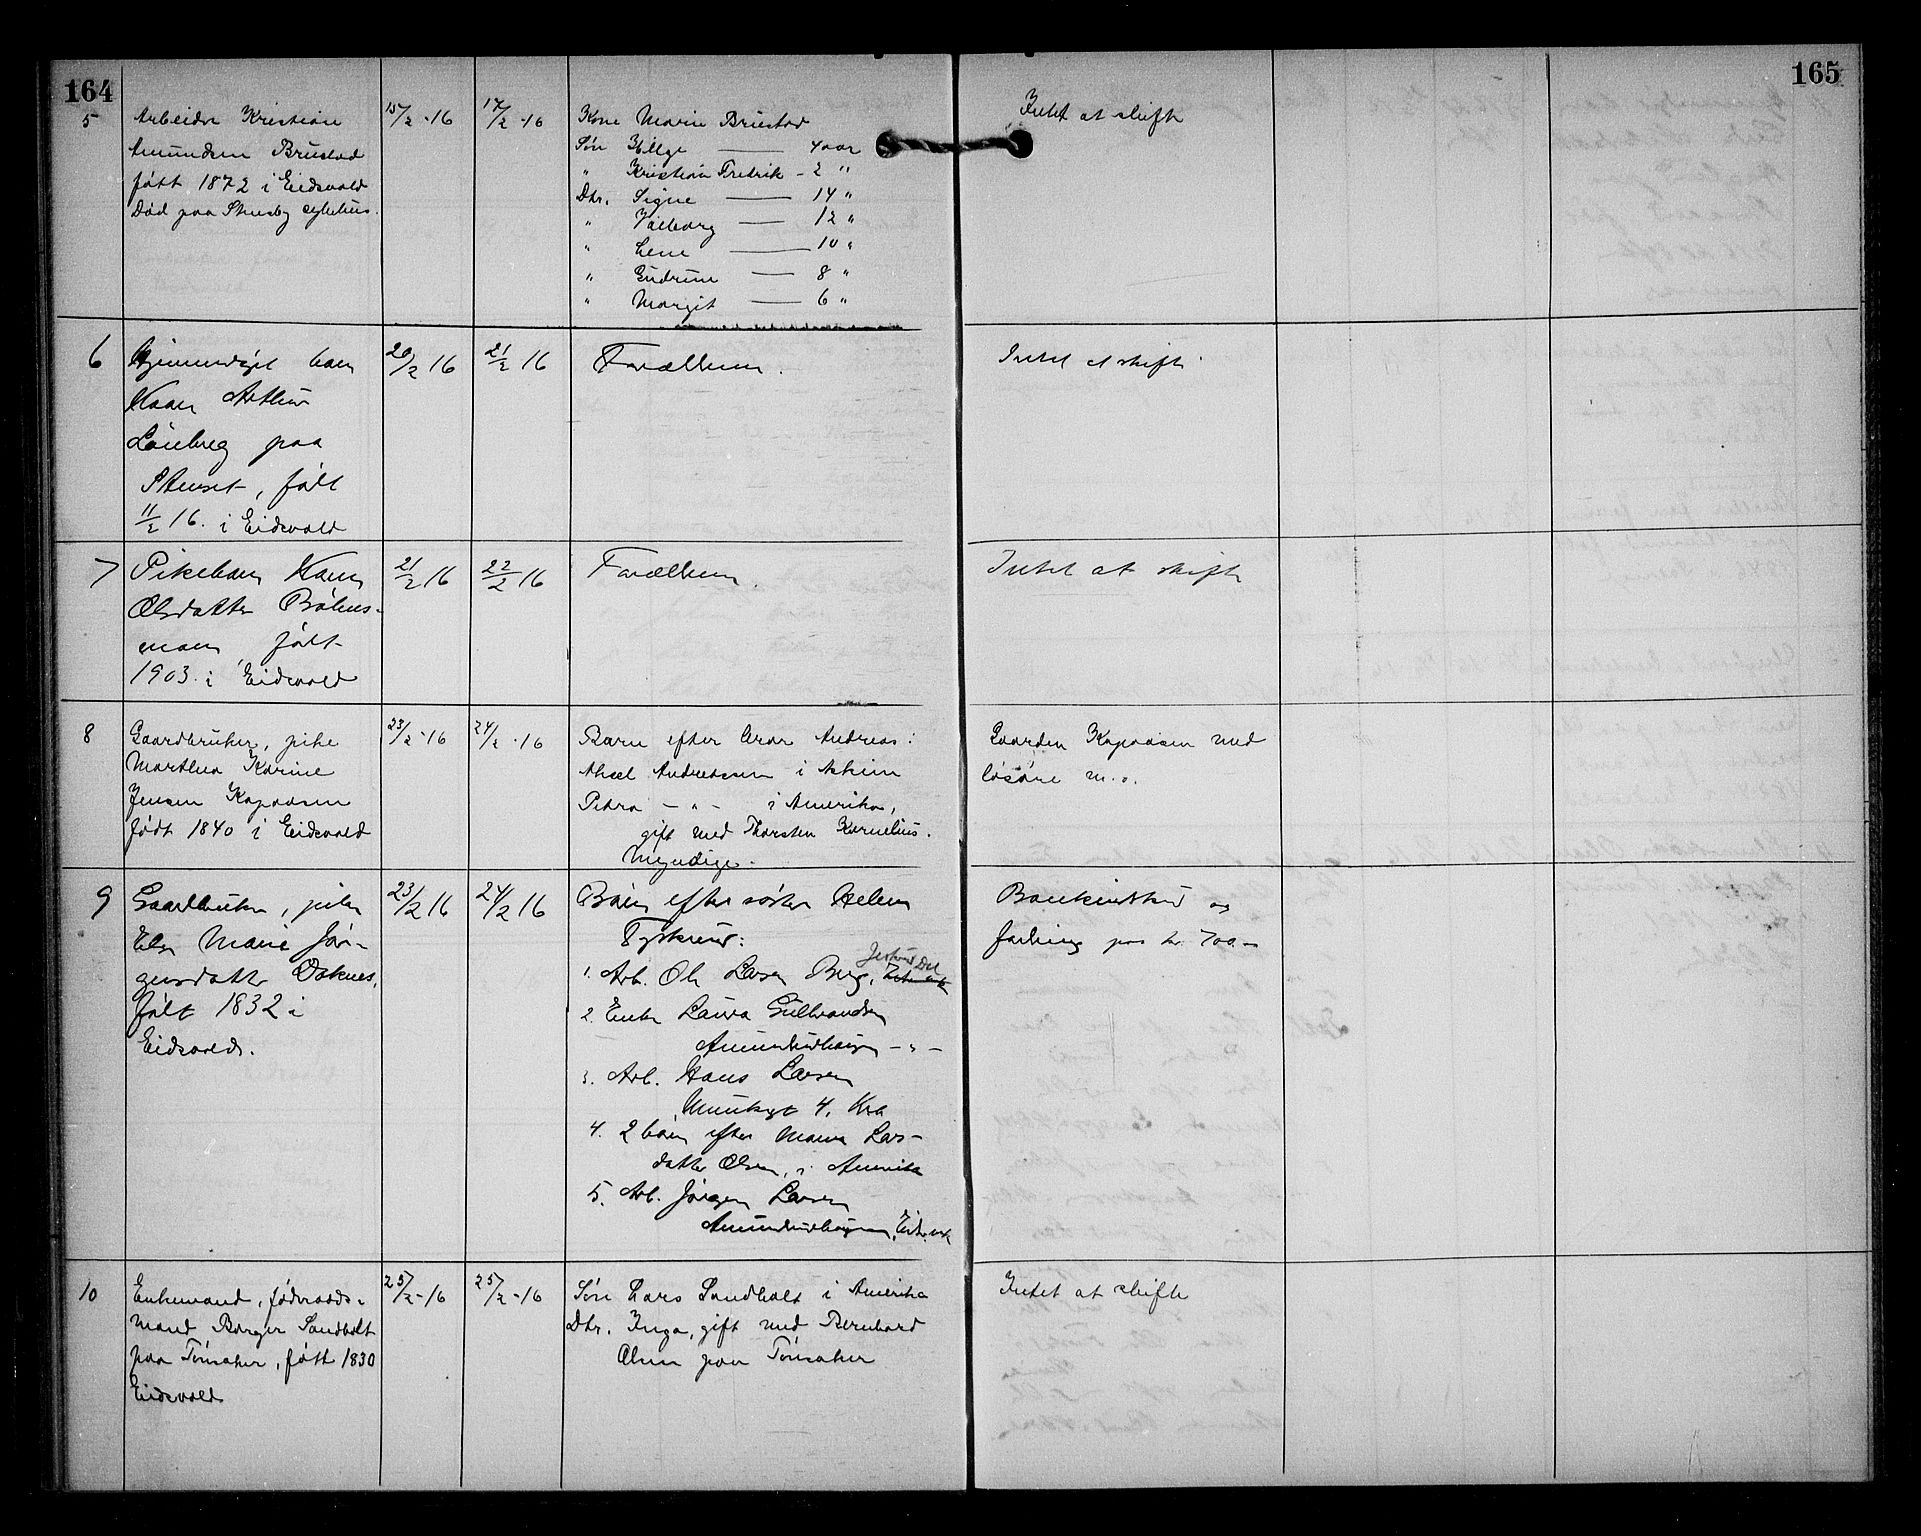 164
165
5
Arbeider Kristian
Amundsen Brustad
født 1872 i Eidsvold
Død paa Stensby sykehus.
15/2 - 16
17/2 - 16
Kone Marie Brustad
Søn Helge — 4 aar
" Kristian Fredrik - 2 "
Dtr. Signe — 14 "
" Valborg — 12 "
" Lene — 10 "
" Gudrun — 8 "
" Margit — 6 "
Intet at skifte
6
Hjemmedøpt barn
Kaare Arthur
Lønberg paa
Stenset, født
11/2 16. i Eidsvold
20/2 16
21/2 16
Forældrene.
Intet at skifte
7
Pikebarn Karen
Olsdatter Bøhns-
moen, født
1903. i Eidsvold
21/2 16
22/2 16
Forældrene.
Intet at skifte
8
Gaardbruker, pike
Marthea Karine
Jensen Kopaasen
født 1840 i Eidsvold
23/2 - 16
24/2 - 16
Barn efter bror Andreas:
Aksel Andreassen i Askim
Petra - " - i Amerika,
gift med Thorsten Kornelius.
Myndige.
Gaarden Kopaasen med
løsøre m.v.
9
Gaardbruker, pike
Else Marie Jør-
gensdatter Doknes,
født 1832 i
Eidsvold.
23/2 16
24/2 16
Børn efter søster Helene
Tyskrud:
1. Arb. Ole Larsen Berg,
2. Enke Laura Gulbrandsen
Amundrudhaugen - " -
3. Arb. Hans Larsen
Munkegt 4, Kra
4. 2 børn efter Maren Lars-
datter Olsen, i Amerika
5. Arb. Jørgen Larsen
Amundrudhaugen, Eidsvold
Bankinskud og
fordring paa kr. 700.-
10
Enkemand, føderaads-
mand Borger Sandholt
paa Tønsaker, født 1830
Eidsvold
25/2 - 16
25/2 - 16
Søn Lars Sandholt i Amerika
Dtr. Inga, gift med Bernhard
Olsen paa Tønsaker
Intet at skifte